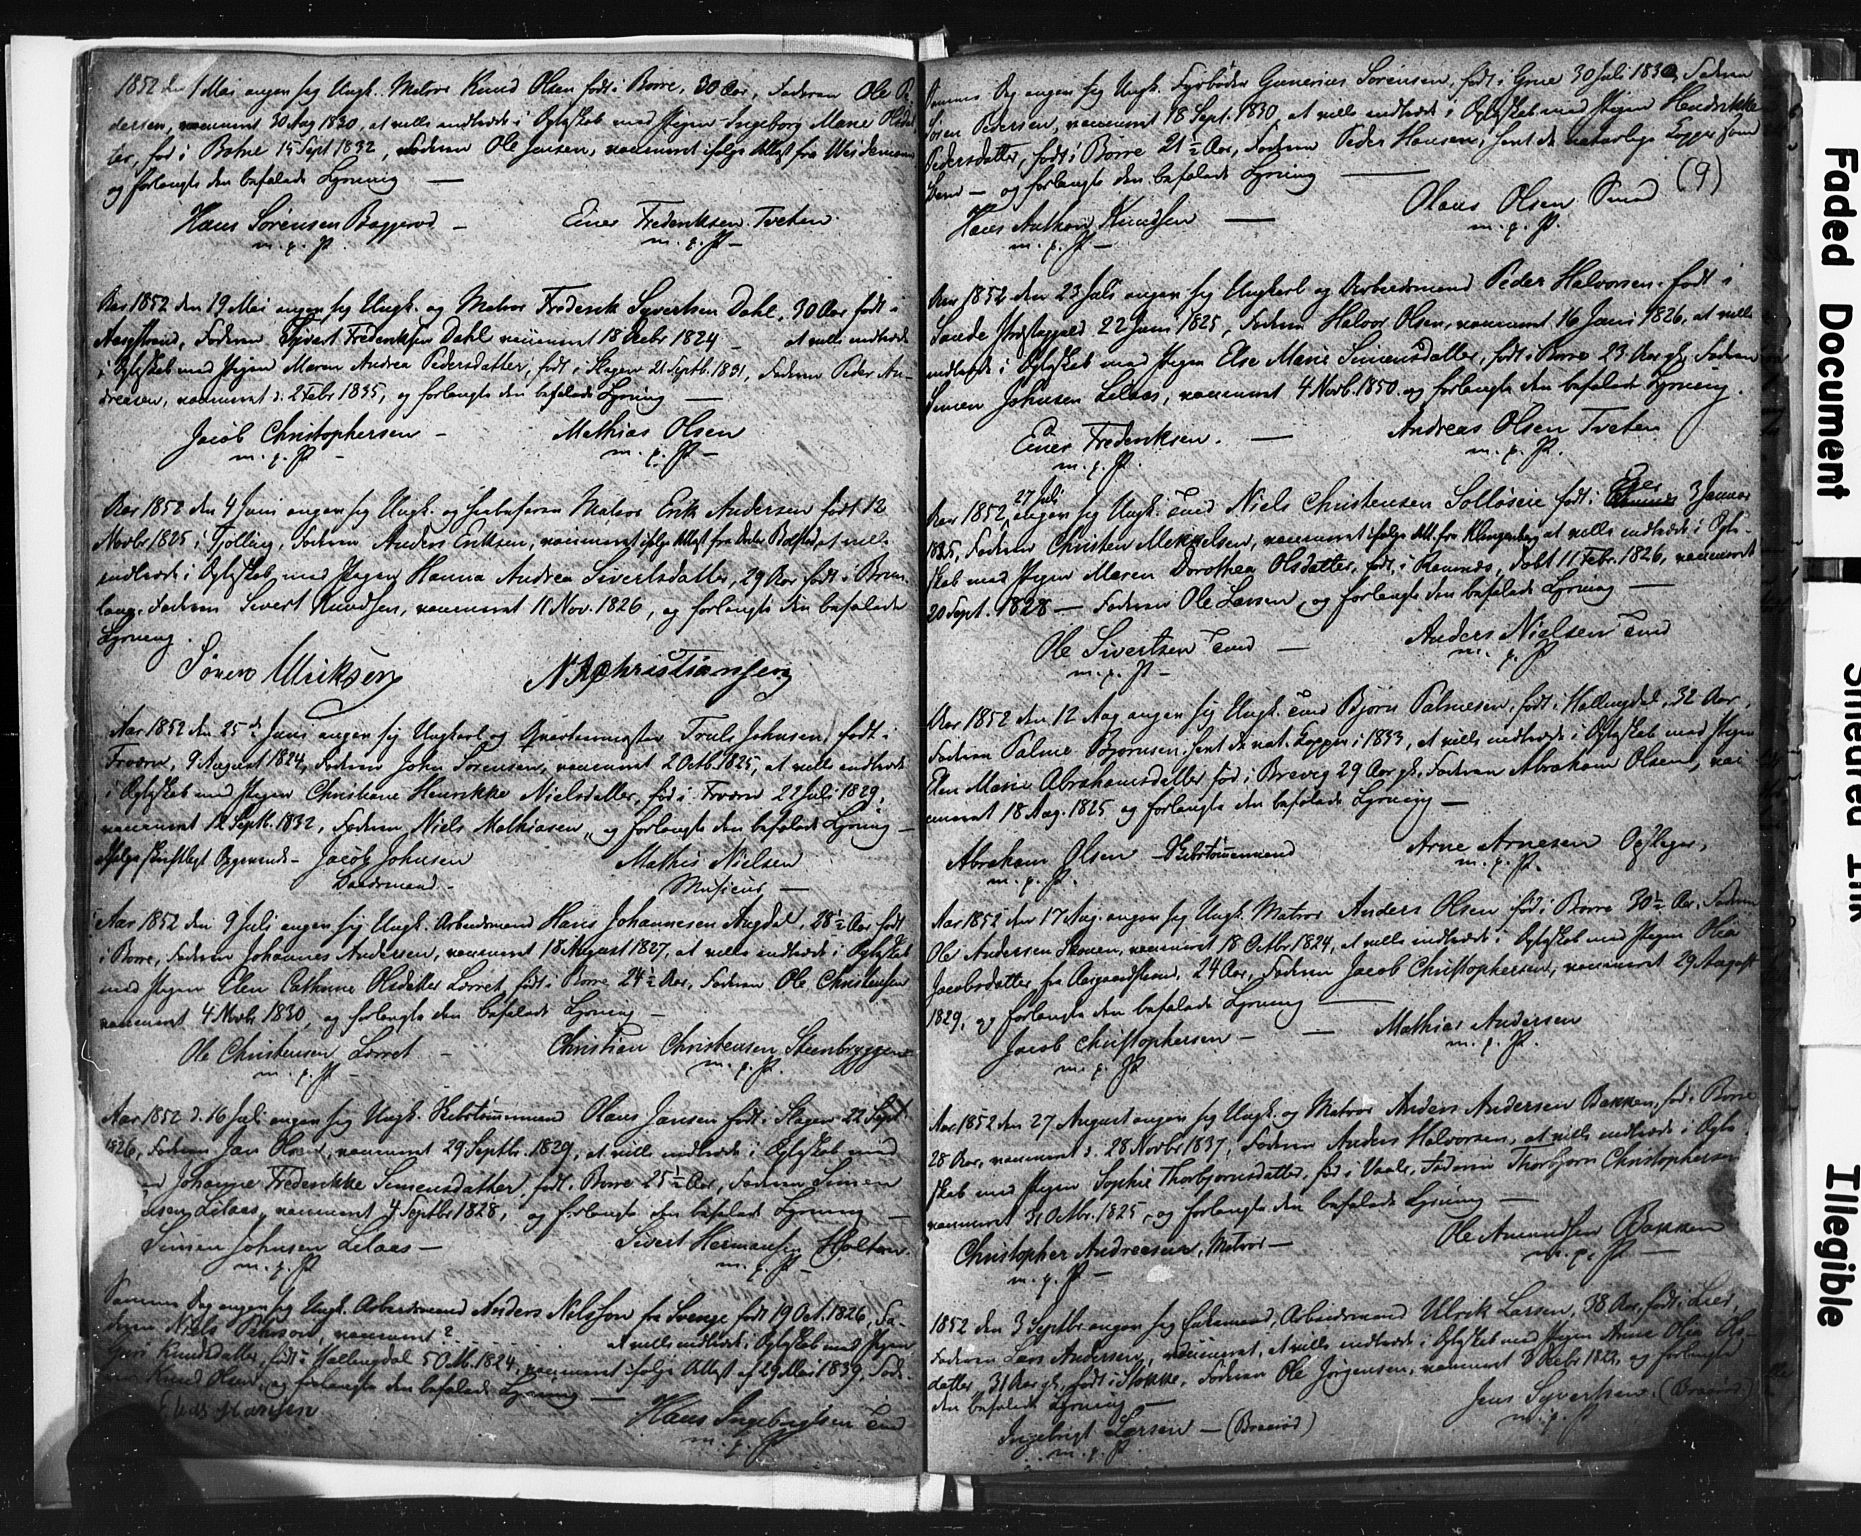 1852 den 1 Mai angav sig Ungk. Matros Knud Olsen født i Borre, 30 Aar, Faderen Ole
dersen, vaccineret 30 Aug 1830, at ville indtræde i Ægteskab med Pigen Ingeborg Marie Olsdat
ter, fød i Botne 15 Sept 1832, Faderen Ole Jensen, vaccineret ifølge Attest fra
og forlangte den befalede Lysning —
Hans Sørensen Baggerød — Einer Frederiksen Tveten
m. p. P. m. p. P —
Aar 1852 den 19 Mai angav sig Ungk. og Matros Frederik Syvertsen Dahl, 30 Aar født i
Aasgstrand, Faderen Syvert Frederiksen Dahl vaccineret 18 Decbr 1824 — at ville indtræde
i Ægteskab med Pigen Maren Andrea Pedersdatter, født i Slagen 21 Septb. 1831, Faderen Peder An-
dreasen, vaccineret d. 2 Febr 1835, og forlangte den befalede Lysning —
Jacob Christophersen — Mathias Olsen
m. p. P — m. p. P —
Aar 1852 den 4 Juni angav sig Ungk. og Matros Erik Andersen født 12
Novbr 1825 i Tjølling, Faderen Anders Eriksen, vaccineret ifølge Attest fra at ville
indtræde i Ægteskab med Pigen Hanna Andrea Sivertsdatter, 29 Aar født i Brun
lanæs Faderen Sivert Knudsen, vaccineret 11 Nov. 1826, og forlangte den befalede
Lysning.
Søren Ulriksen Christiansen
Aar 1852 den 25de Juni angav sig Ungkarl og Qvarteermester Truls Johnsen født i
9 August 1824, Faderen John Sørensen, vaccineret 2 Octb. 1825, at ville indtræde
i Ægteskab med Pigen Christiane Henrikke Nielsdatter, fød i 22 Juli 1829,
vaccineret 12 Septb. 1832, Faderen Niels Mathiasen, og forlangte den befalede Lysning —
ifølge skriftligt Opgivende — Jacob Johnsen Mathis Nielsen
Musicus —
Aar 1852 den 9 Juli angav sig Ungk. Arbeidsmand Hans Johannesen Augdal, 28½ Aar født
i Borre, Faderen Johannes Andersen, vaccineret 18 August 1827, at ville indtræde i Ægteskab
med Pigen Elen Cathrine Olsdatter Lørret, født i Borre 24½ Aar, Faderen Ole Christensen
vaccineret 4 Novbr. 1830, og forlangte den befalede Lysning —
Ole Christensen Lørret — Christian Christensen Steenbryggen
m. p. P — m. p. P.
Aar 1852 d. 16 Juli angav sig Ungk. Skibstømmermand Olaus Jansen født i Slagen 22 Sept
1826, Faderen Jan Olsen, vaccineret 29 Septbr. 1829, at ville indtræde i Ægteskab med
Johanne Frederikke Simensdatter, født i Borre 25½ Aar, Faderen Simen
nsen Lilaas, vaccineret 4 Septbr 1828, og forlangte den befalede Lysning —
Simen Johnsen Lilaas — Sivert Hermansen Holtan.
m. p. P — m. p. P —
Samme Dag angav sig Ungk. Arbeidsmand Anders Nilsson fra Sverige født 19 Oct. 1826, Fa-
deren Niels vaccineret? at ville indtræde i Ægteskab med Pigen
Guri Knudsdatter, født i Hallingdal 5 Octb. 1824, vaccineret ifølge Attest af 29 Mai 1839, Fade-
Knud Olsen, og forlangte den befalede Lysning —
Hansen Hans Ingebrigtsen Eund
m. p. P
Samme Dag angav sig Ungk. Fyrbøder Gunerius Sørensen, født i Grue 30 Juli 1830, Faderen
Søren Pedersen, vaccineret 18 Sept. 1830, at ville indtræde i Ægteskab med Pigen Hendrikke
Pedersdatter, født i Borre 21½ Aar, Faderen Peder Hansen, havt de naturlige Kopper som
Barn — og forlangte den befalede Lysning — (9)
Hans Anthon Knudsen — Olaus Olsen
m. p. P — m. p. P.
Aar 1852 den 23 Juli angav sig Ungkarl og Arbeidsmand Peder Halvorsen født i
Sande Præstegjeld 22 Juni 1825, Faderen Halvor Olsen, vaccineret 16 Juni 1826, at ville
indtræde i Ægteskab med Pigen Else Marie Simensdatter, født i Borre 23 Aar gl. Faderen
Simen Johnsen Lilaas, vaccineret 4 Novb. 1850. og forlangte den befalede Lysning.
Einer Frederiksen. — Andreas Olsen Tveten
m. p. P. m. p. P.
27 Juli Eger
Aar 1852, angav sig Ungk. Eund Niels Christensen Solløseie født i 3 Januar
1825, Faderen Christen Mikkelsen, vaccineret ifølge Att. fra Klingenberg at ville indtræde i Ægte-
skab med Pigen Maren Dorothea Olsdatter, født i Ramnæs, døbt 11 Febr. 1826, vaccineret
20 Sept. 1828 — Faderen Ole Larsen, og forlangte den befalede Lysning —
Ole Sivertsen Eund — Anders Nielsen Eund
m. p. P — m. p. P
Aar 1852 den 12 Aug angav sig Ungk. Eund Bjørn Palmesen, født i Hallingdal, 32 Aar,
Faderen Palme Bjørnsen. havt de nat. Kopper i 1833, at ville indtræde i Ægteskab med Pigen
Elen Marie Abrahamsdatter fød i Brevig 29 Aar gl. Faderen Abraham Olsen, vac-
cineret 18 Aug. 1825 og forlangte den befalede Lysning —
Abraham Olsen Skibstømmermand Arne Arnesen Opsteger,
m. p. P. m. p. P.
Aar 1852 den 17 Aug. angav sig Ungk. Matros Anders Olsen fød i Borre 30½ Aar, Faderen
Ole Andersen Skouen, vaccineret 18 Octbr. 1824, at ville indtræde i Ægteskab med Pigen Olia
Jacobsdatter fra Aasgaardstrand, 24 Aar, Faderen Jacob Christophersen, vaccineret 29 August
1829, og forlangte den befalede Lysning —
Jacob Christophersen — Mathias Andersen
m. p. P m. p. P.
Aar 1852 den 27 August angav sig Ungk. og Matros Anders Andersen Bakken, fød i Borre
28 Aar, vaccineret d. 28 Novbr 1837, Faderen Anders Halvorsen, at ville indtræde i Ægte
skab med Pigen Sophie Thorbjørnsdatter, fød i Vaale, Faderen Thorbjørn Christophersen
vaccineret 31 Octbr. 1825, og forlangte den befalede Lysning —
Christopher Andreasen, Matros — Ole Amundsen Bakken
m. p. P — m. p. P —
1852 den 3 Septbr angav sig Enkemand, Arbeidsmand Ulrik Larsen, 38 Aar, født i Lier,
Faderen Lars Andersen, vaccineret, at ville indtræde i Ægteskab med Pigen Anne Olia Ols-
datter, 31 Aar gl. født i Stokke, Faderen Ole Jørgensen, vaccineret 3 Decbr 1822, og forlangte
den befalede Lysning — Jens Syvertsen (Braarød)
Ingebrigt Larsen — (Braarød) m. p. P
m. p. P.
Faded Document
Smeared Ink
Illegible